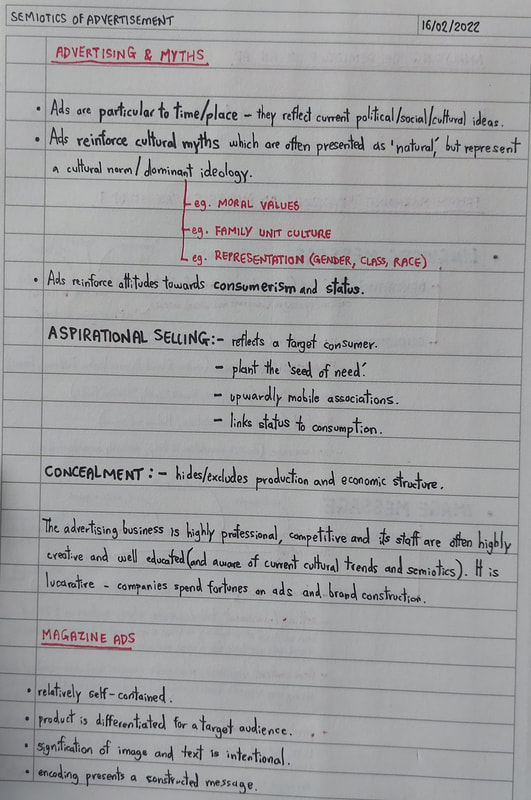 SEMIOTICS OF ADVERTISEMENT
16/02/2022
ADVERTISING & MYTHS
• Ads are particular to time/place – they reflect current political/social/cultural ideas.
• Ads reinforce cultural myths which are often presented as 'natural', but represent
a cultural norm/dominant ideology.
eg. MORAL VALUES
eg. FAMILY UNIT CULTURE
eg. REPRESENTATION (GENDER, CLASS, RACE)
• Ads reinforce attitudes towards consumerism and status.
ASPIRATIONAL SELLING:- reflects a target consumer.
– plant the 'seed of need'.
– upwardly mobile associations.
– links status to consumption.
CONCEALMENT :- hides/excludes production and economic structure.
The advertising business is highly professional, competitive and its staff are often highly
creative and well educated (and aware of current cultural trends and semiotics). It is
lucarative – companies spend fortunes on ads and brand construction.
MAGAZINE ADS
• relatively self-contained.
• product is differentiated for a target audience.
• signification of image and text is intentional.
• encoding presents a constructed message.